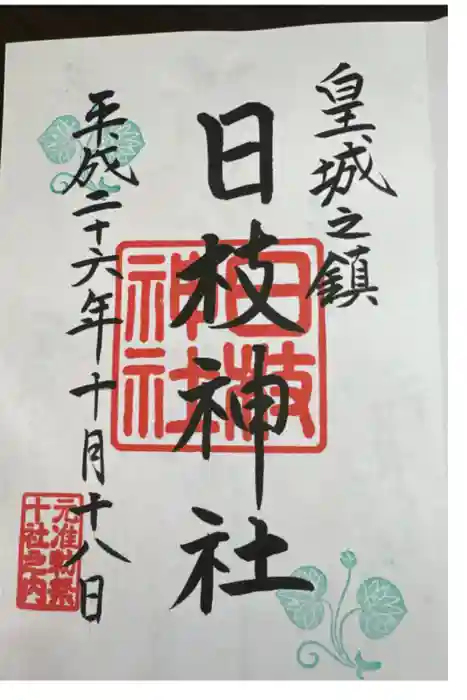 皇城之鎮
日枝神社
日枝神社
平成二十六年十月十八日
元准勅祭
十社之内